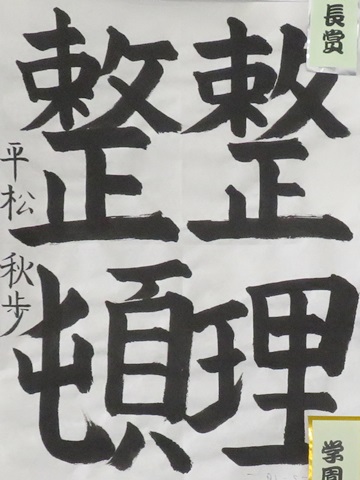 整理
整頓
平松 秋歩
長賞
学園